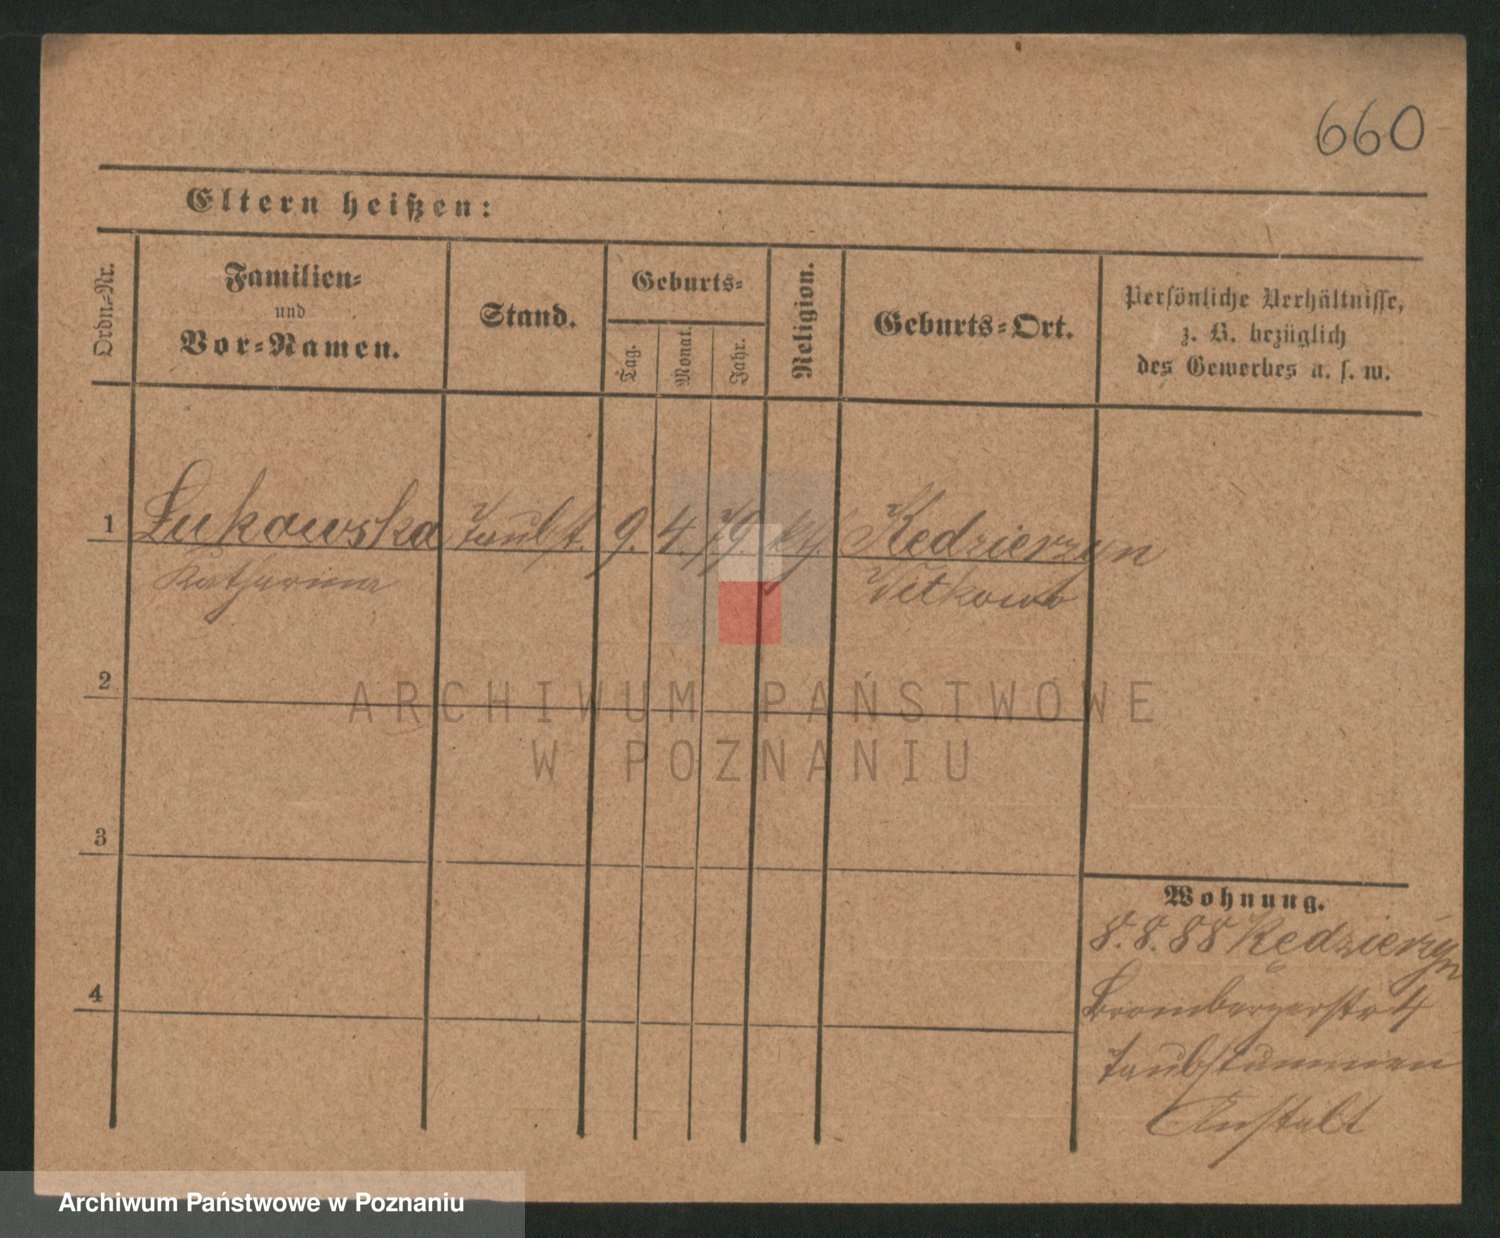 660
Eltern heißen:
Ordn.-Nr.
Familien-
und
Vor-Namen.
Stand.
Geburts-
Tag.
Monat.
Jahr.
Religion.
Geburts-Ort.
Persönliche Verhältnisse,
z. B. bezüglich
des Gewerbes u. s. w.
1 Lukowska Taubst. 9. 4. 79. kth. Kedzierzyn
Katharina Witkowo
2
3
4
Wohnung.
8. 8. 88 Kędzierzyn
Brombergerstr 4
Taubstummen
Anstalt
ARCHIWUM PAŃSTWOWE
W POZNANIU
Archiwum Państwowe w Poznaniu